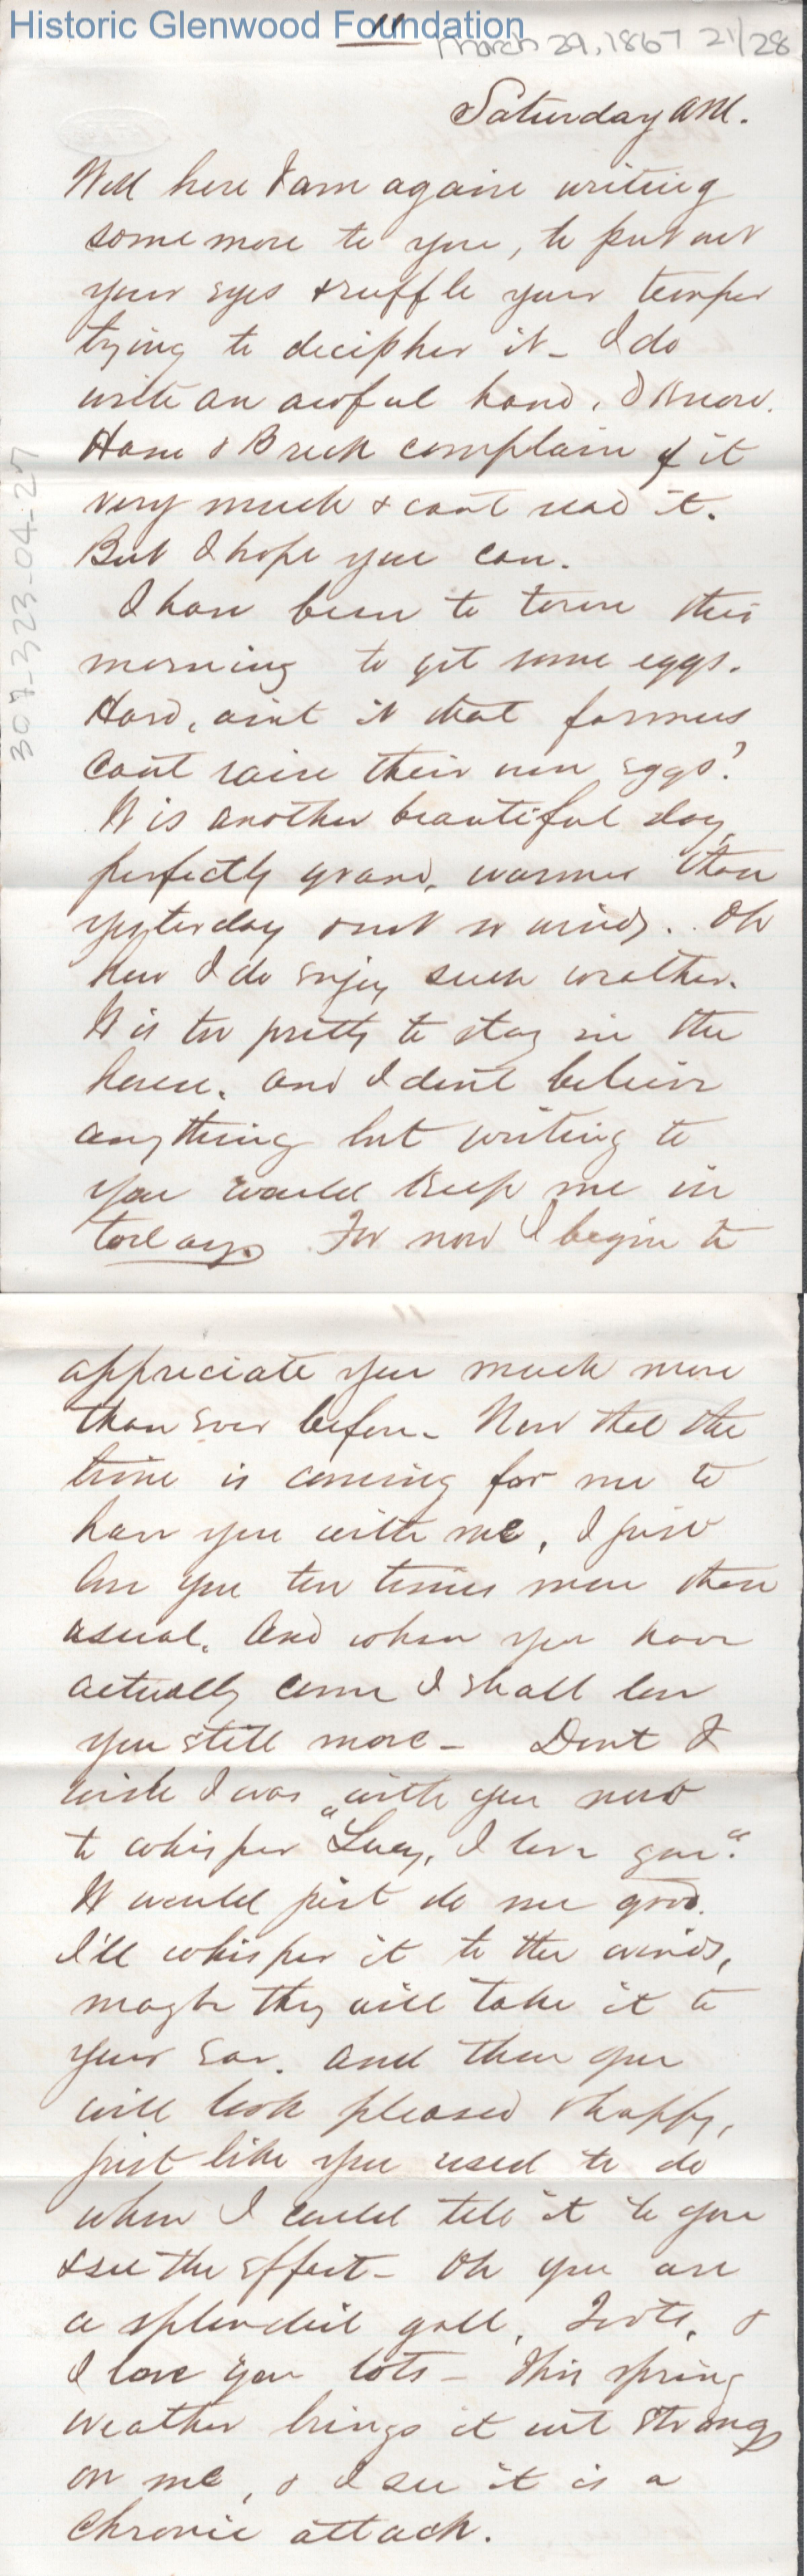 Historic Glenwood Foundation
11
March 29, 1867 21/28
Saturday AM.
Well here I am again writing
some more to you, to put out
your eyes & ruffle your temper
trying to decipher it - I do
write an awful hand, I know.
& Breck complain of it
very much & cant read it.
But I hope you can.
I have been to town this
morning to get some eggs.
Hard, aint it that farmers
cant raise their own eggs?
It is another beautiful day,
perfectly grand, warmer than
yesterday & not so windy. Oh
how I do enjoy such weather.
It is too pretty to stay in the
house. And I dont believe
anything but writing to
you would keep me in
today. For now I begin to
307-323-04-27
11
appreciate you much more
than ever before - Now that the
time is coming for me to
have you with me, I just
love you ten times more than
usual. And when you have
actually come I shall love
you still more - Dont I
wish I was with you now
to whisper "Lucy, I love you".
It would just do me good.
I'll whisper it to the winds,
maybe they will take it to
your ear. And then you
will look pleased & happy,
just like you used to do
when I could tell it to you
& see the effect - Oh you are
a splendid gall, &
I love you lots - This spring
weather brings it out strong
on me, & I see it is a
chronic attack.